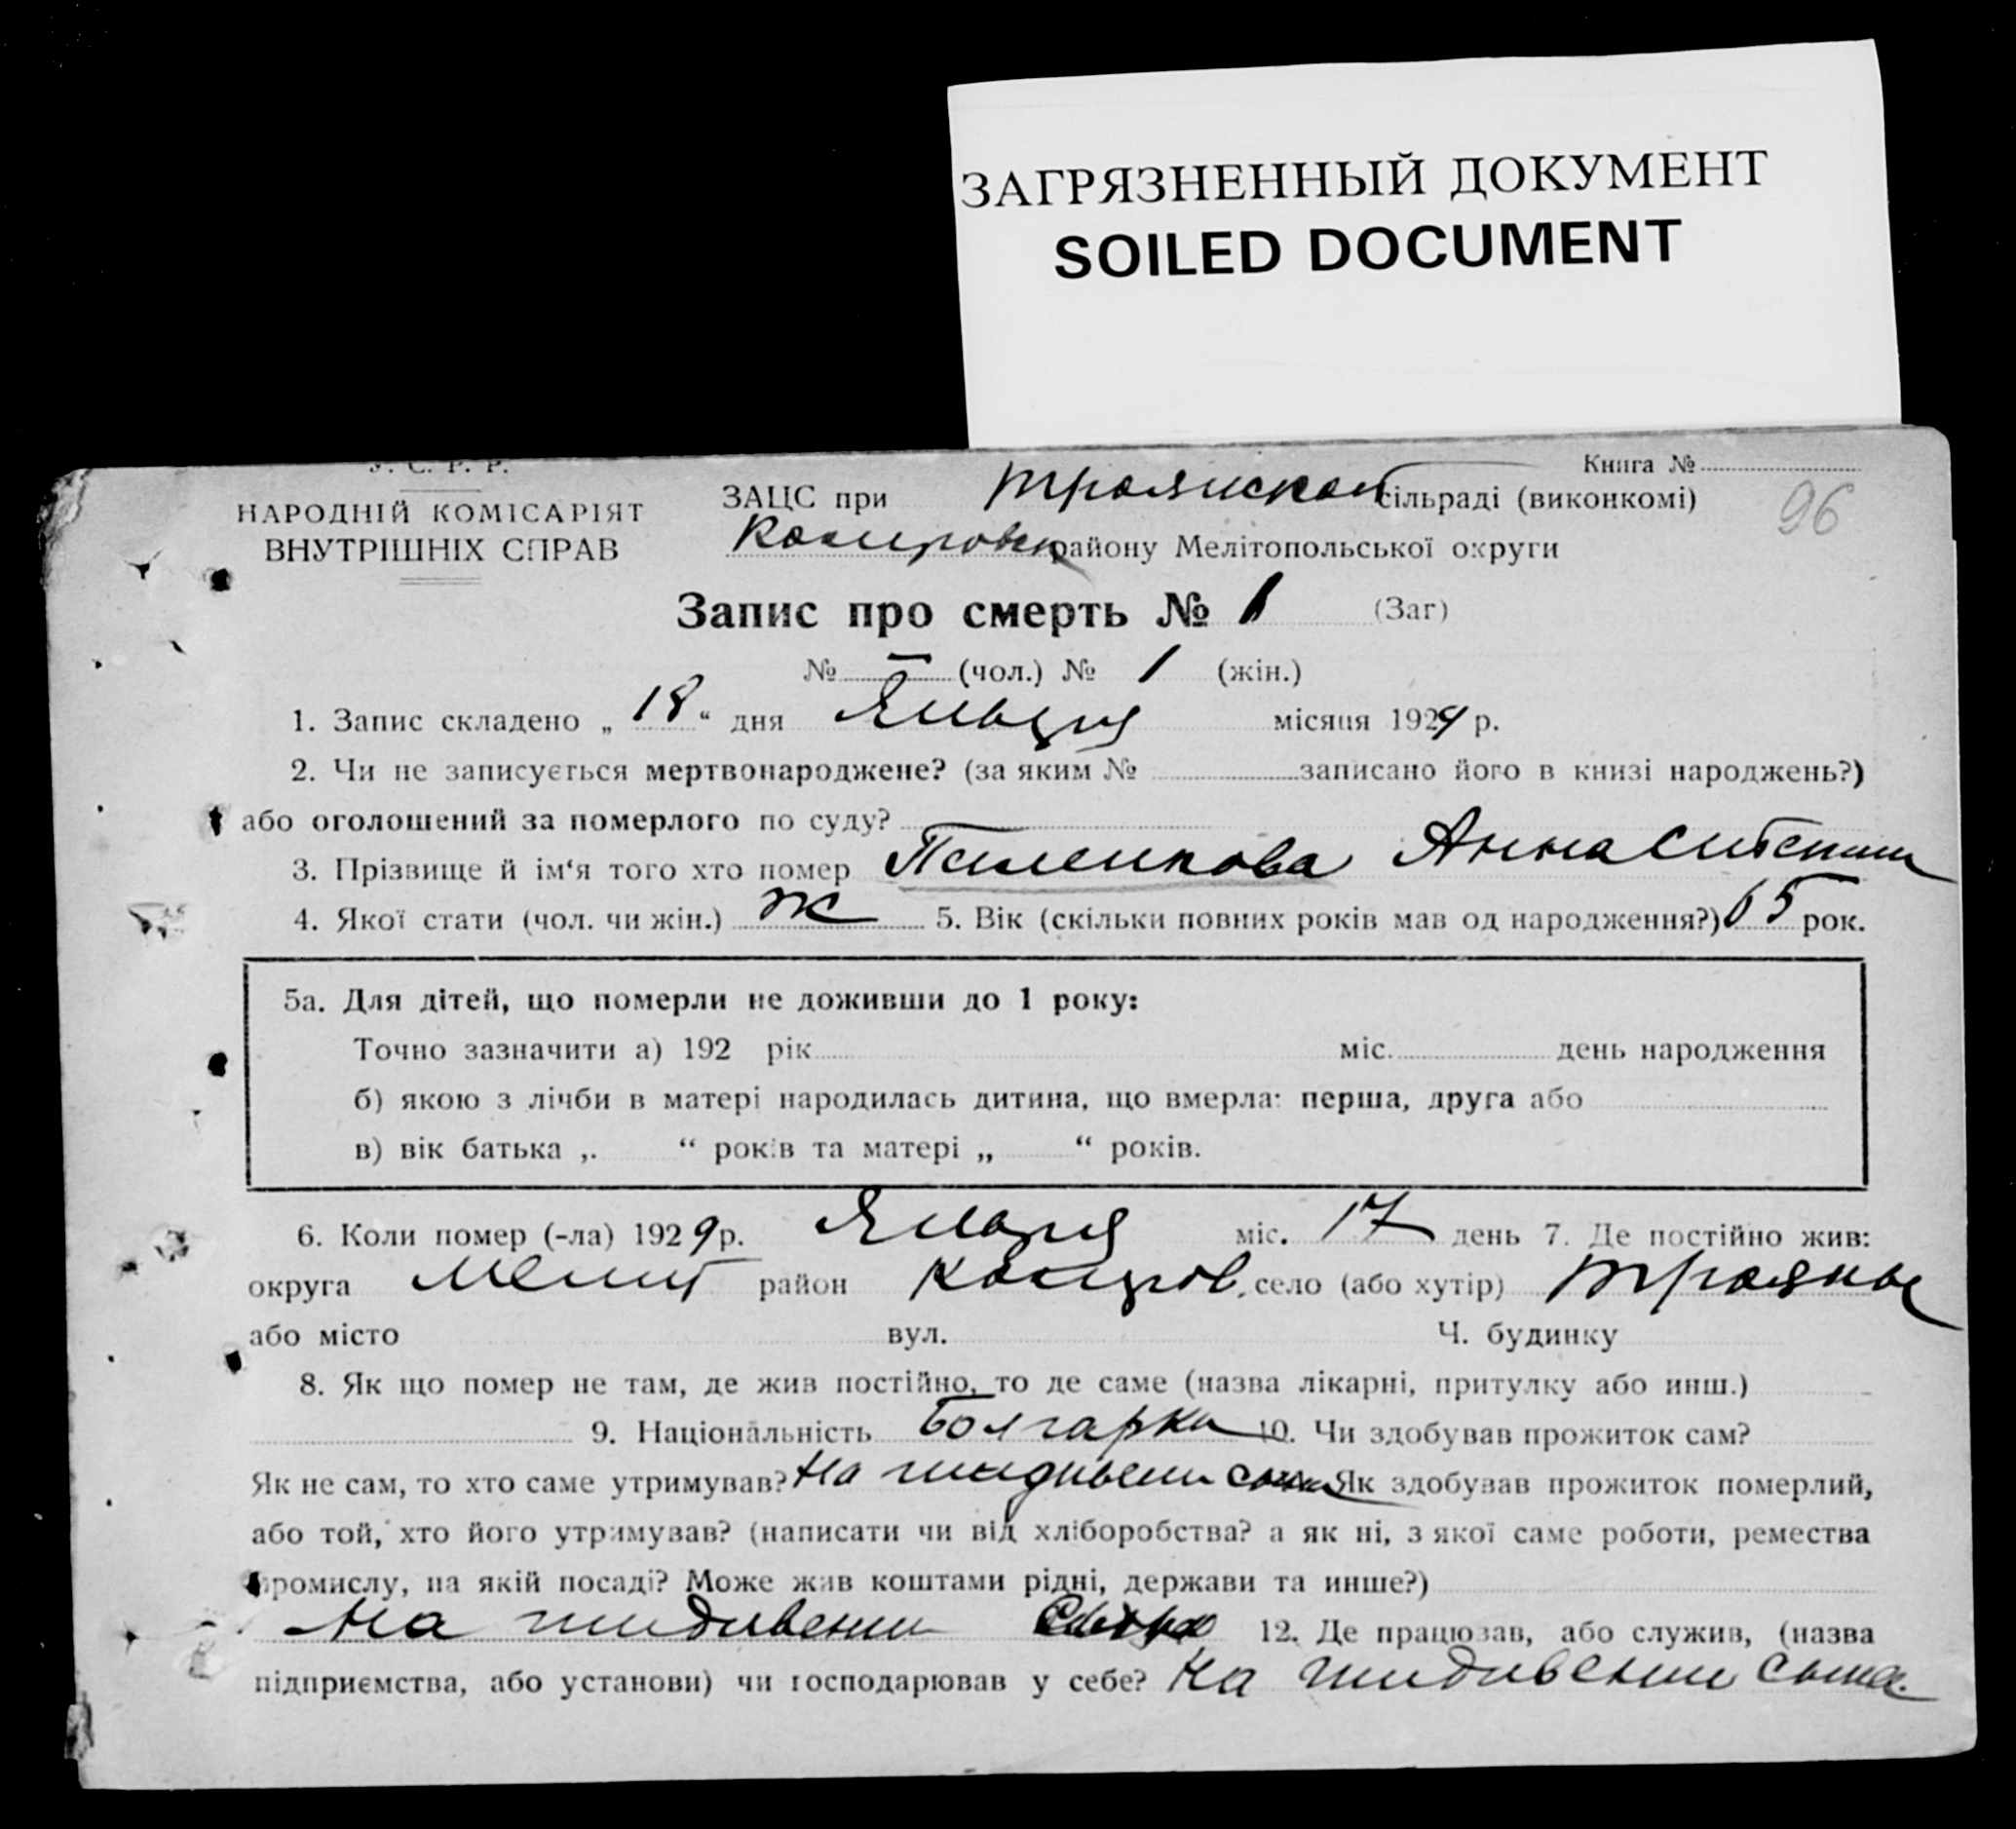 ЗАГРЯЗНЕННЫЙ ДОКУМЕНТ
SOILED DOCUMENT
У. С. Р. Р.
Книга №
НАРОДНІЙ КОМІСАРІЯТ
ВНУТРІШНІХ СПРАВ
ЗАЦС при Троянской сільраді (виконкомі)
96
району Мелітопольської округи
Запис про смерть № 1 (Заг)
№ — (чол.) № 1 (жін.)
1. Запис складено „ 18 “ дня Января місяця 1929 р.
2. Чи не записується мертвонароджене? (за яким № записано його в книзі народжень?)
або оголошений за померлого по суду?
3. Прізвище й ім‘я того хто помер Анна
4. Якої стати (чол. чи жін.) Ж 5. Вік (скільки повних років мав од народження?) 65 рок.
5а. Для дітей, що померли не доживши до 1 року:
Точно зазначити а) 192 рік міс. день народження
б) якою з лічби в матері народилась дитина, що вмерла: перша, друга або
в) вік батька „ “ років та матері „ “ років.
6. Коли помер (-ла) 1929 р. Января міс. 17 день 7. Де постійно жив:
округа Мелит район село (або хутір) Трояны
або місто вул. Ч. будинку
8. Як що помер не там, де жив постійно, то де саме (назва лікарні, притулку або инш.)
9. Національність Болгарка 10. Чи здобував прожиток сам?
Як не сам, то хто саме утримував? На иждивении сына Як здобував прожиток померлий,
або той, хто його утримував? (написати чи від хліборобства? а як ні, з якої саме роботи, ремества
промислу, на якій посаді? Може жив коштами рідні, держави та инше?)
На иждивении 12. Де працював, або служив, (назва
підприємства, або установи) чи господарював у себе? На иждивении сына.